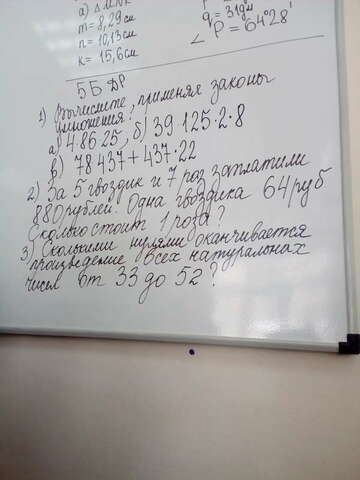 а) △ MNK
m = 8,29 см
n = 10,13 см
к = 15,6 см
q = 31 дм
∠ P = 64°28'
5Б ДР
1) Вычислите, применяя законы
умножения:
а) 4·86·25, б) 39·125·2·8
в) 78·437+437·22
2) За 5 гвоздик и 7 роз заплатили
880 рублей. Одна гвоздика 64 руб
Сколько стоит 1 роза?
3) Сколькими нулями оканчивается
произведение всех натуральных
чисел от 33 до 52?